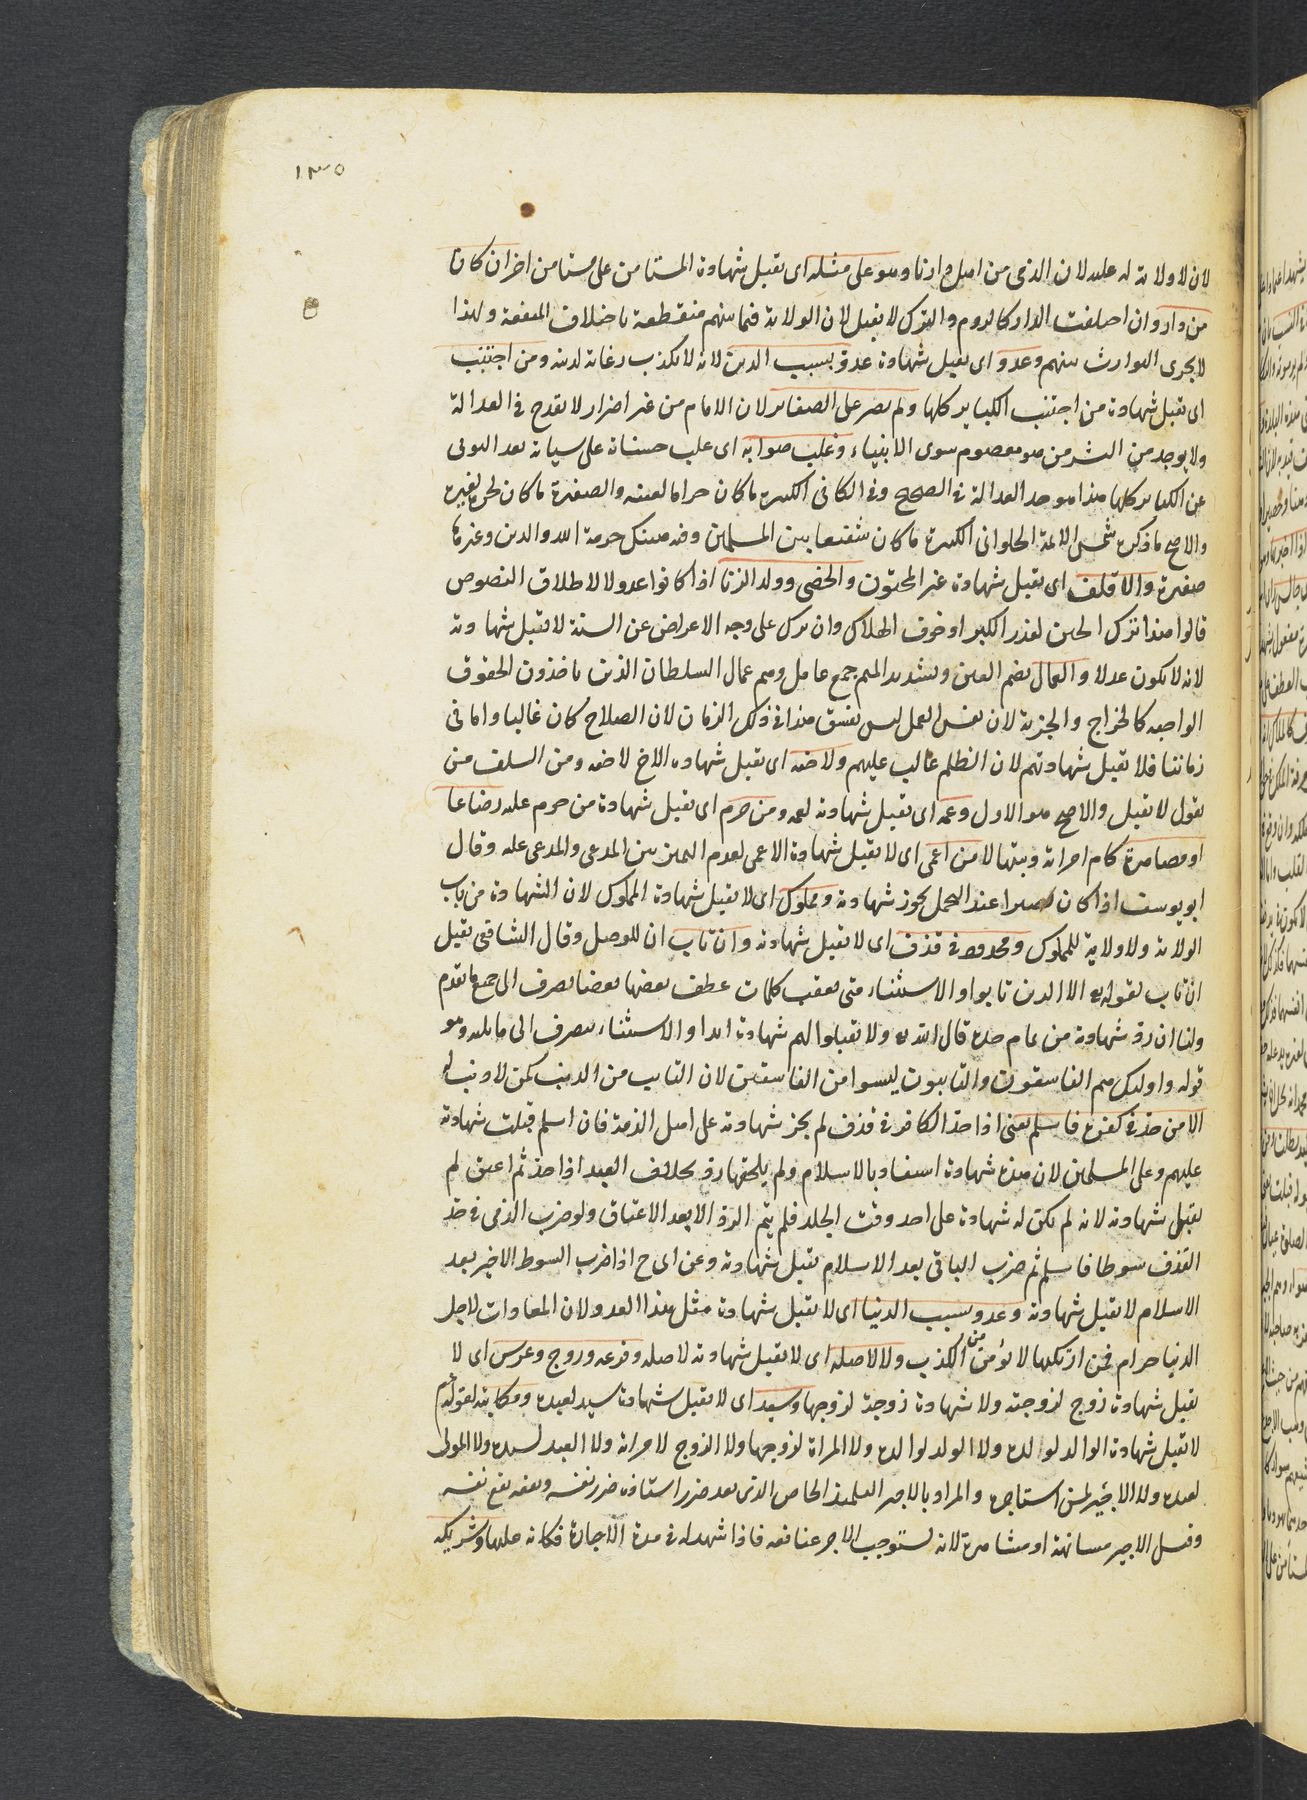 ١٣٥
لان لا ولاية له عليه لان الذمى من اهل دارنا وهو على مثله اى يقبل شهادة المستامن على مستامن اخر ان كانا
من دار وان اختلفت الدار كالروم والترك لا تقبل لان الولاية فيما بينهم منقطعة باختلاف المنعة ولهذا
لا يجرى التوارث بينهم وعدو اى يقبل شهادة عدو بسبب الدين لانه لا يكذب رعاية لدينه ومن اجتنب
اى تقبل شهادة من اجتنب الكباير كلها ولم يصر على الصغاير لان الالمام من غير اضرار لا يقدح فى العدالة
ولا يوجد من البشر من هو معصوم سوى الانبياء وغلب صوابه اى غلب حسناته على سياته بعد التوقى
عن الكباير كلها هذا هو حد العدالة فى الصحيح وفى الكافى الكبيرة ما كان حراما لعينه والصغيرة ما كان لحرم لغيره
والاصح ما ذكره شمس الائمة الحلوانى الكبيرة ما كان شنيعا بين المسلمين وفيه هتك حرمة الله والدين وغيرها
صغيرة والاقلف اى يقبل شهادة غير المختون والخصى وولد الزنا اذا كانوا عدولا لاطلاق النصوص
قالوا هذا ترك الختن لعذر الكبر او خوف الهلاك وان ترك على وجه الاعراض عن السنة لا تقبل شهادته
لانه لا يكون عدلا والعمال بضم العين وتشديد الميم جمع عامل وهم عمال السلطان الذين ياخذون الحقوق
الواجبه كالخراج والجزية لان نفس العمل ليس بفسق هذا فى ذلك الزمان لان الصلاح كان غالبا واما فى
زماننا فلا تقبل شهادتهم لان الظلم غالب عليهم ولاخيه اى تقبل شهادة الاخ لاخيه ومن السلف من
يقول لا تقبل والاصح هو الاول وعمه اى تقبل شهادته لعمه ومن حرم اى تقبل شهادة من حرم عليه رضاعا
او مصاهرة كام امراته وبنتها لا من اعمى اى لا يقبل شهادة الاعمى لعدم التمييز بين المدعى والمدعى عليه وقال
ابو يوسف اذا كان بصيرا عند التحمل يجوز شهادته ومملوك اى لا يقبل شهادة المملوك لان الشهادة من باب
الولاية ولا ولاية للمملوك ومحدود فى قذف اى لا يقبل شهادته وان تاب ان للوصل وقال الشافعى يقبل
ان تاب لقوله تع الا الذين تابوا والاستثناء متى تعقب كلمات عطف بعضها بعضا يصرف الى جميع ما تقدم
ولنا ان رد شهادته من تمام حده قال الله تع ولا تقبلوا لهم شهادة ابدا والاستثناء ينصرف الى ما يليه وهو
قوله واوليك هم الفاسقون والتايبون ليسوا من الفاسقين لان التايب من الذنب كمن لا ذنب له
الا من حد فى كفره فاسلم يعنى اذا حد الكافر فى قذف لم يجز شهادته على اهل الذمة فان اسلم قبلت شهادته
عليهم وعلى المسلمين لان هذه شهادة استفاد بالاسلام ولم يلحقها رد بخلاف العبد اذا حد ثم اعتق لم
يقبل شهادته لانه لم يكن له شهادة على احد وقت الجلد فلم يتم الرد الا بعد الاعتاق ولو ضرب الذمى فى حد
القذف سوطا فاسلم ثم ضرب الباقى بعد الاسلام تقبل شهادته وعن ابى ح اذا ضرب السوط الاخير بعد
الاسلام لا تقبل شهادته وعدو بسبب الدنيا اى لا يقبل شهادة مثل هذا العدو لان المعادات لاجل
الدنيا حرام فمن ارتكبها لا يؤمن من الكذب ولا لاصله اى لا يقبل شهادته لاصله وفرعه وزوج وعرس اى لا
يقبل شهادة زوج لزوجته ولا شهادة زوجة لزوجها وسيد اى لا تقبل شهادة سيد لعبده ومكاتبه لقوله عم
لا تقبل شهادة الوالد لولده ولا الولد لوالده ولا المراة لزوجها ولا الزوج لامراته ولا العبد لسيده ولا المولى
لعبده ولا الاجير لمن استاجره والمراد بالاجير التلميذ الخاص الذى يعد ضرر استاذه ضرر نفسه ونفعه نفع نفسه
وقيل الاجير مسانهة او مشاهرة لانه يستوجب الاجر بمنافعه فاذا شهد له فى مدة الاجارة فكانه عليها وشريكه